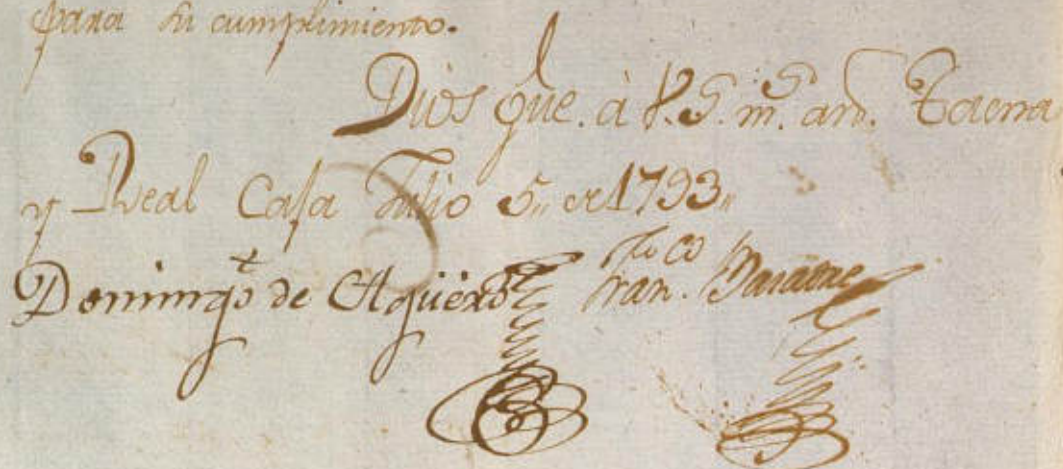 para su cumplimiento.
Dios gūe. à V.S. m.s an.s Tacna
y Real Caja Julio 5,, de 1793,,
Domingo de Agüero Fran.co